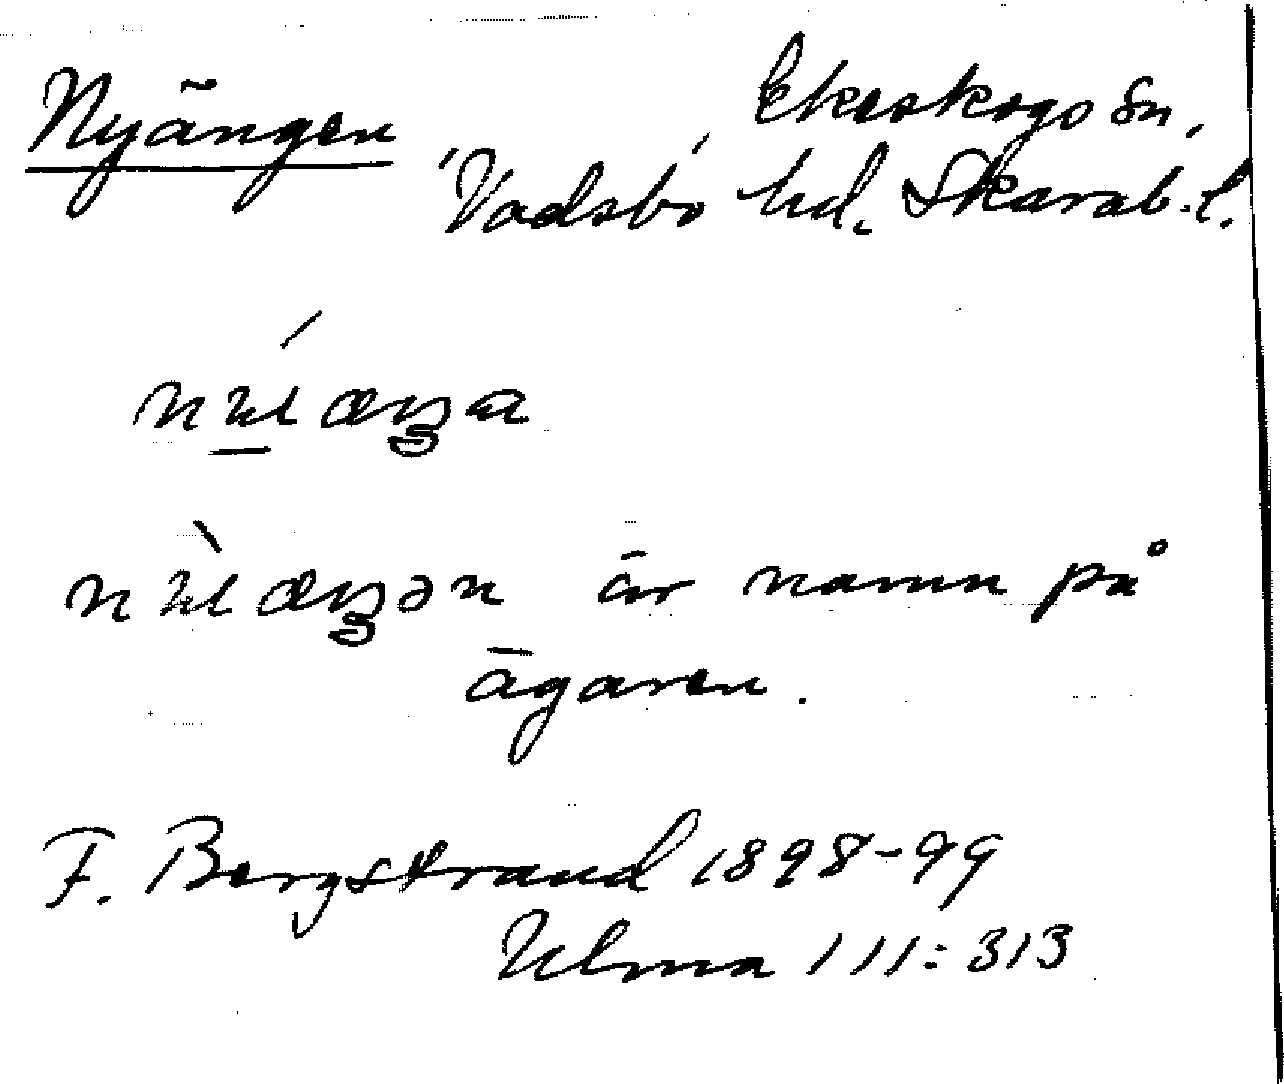 Nyängen
Ekeskogs sn,
Vadsbo hd. Skarab. l.
är namn på
ägaren.
F. Bergstrand 1898-99
Ulma 111:313